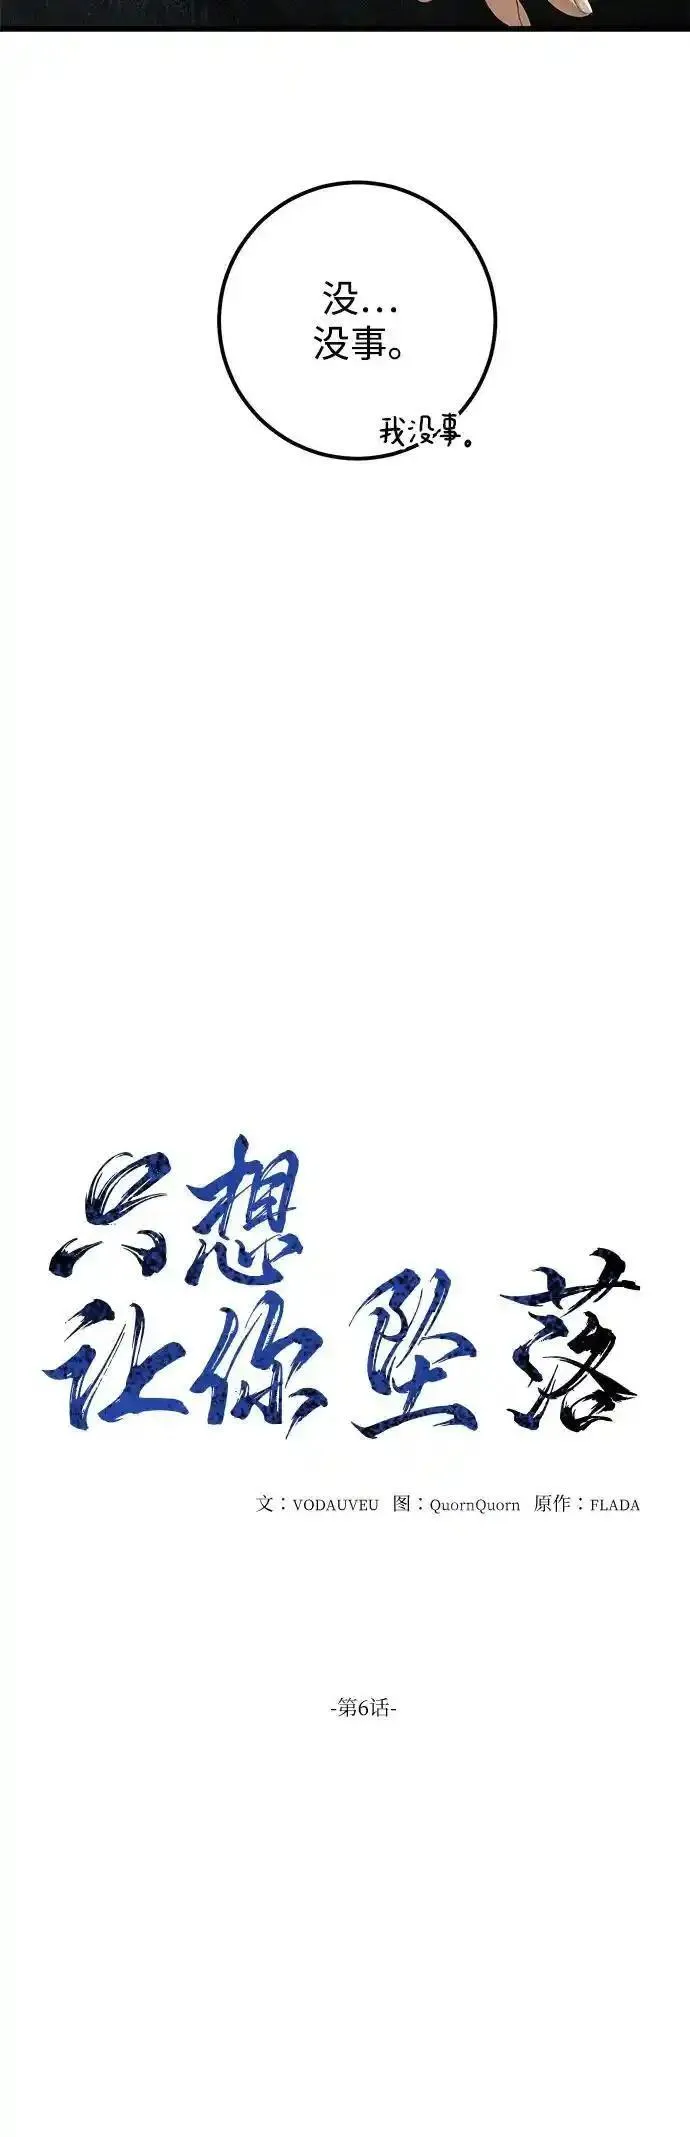 没...
没事。
我没事。
只想
让你坠落
文：VODAUVEU 图：QuornQuorn 原作：FLADA
-第6话-